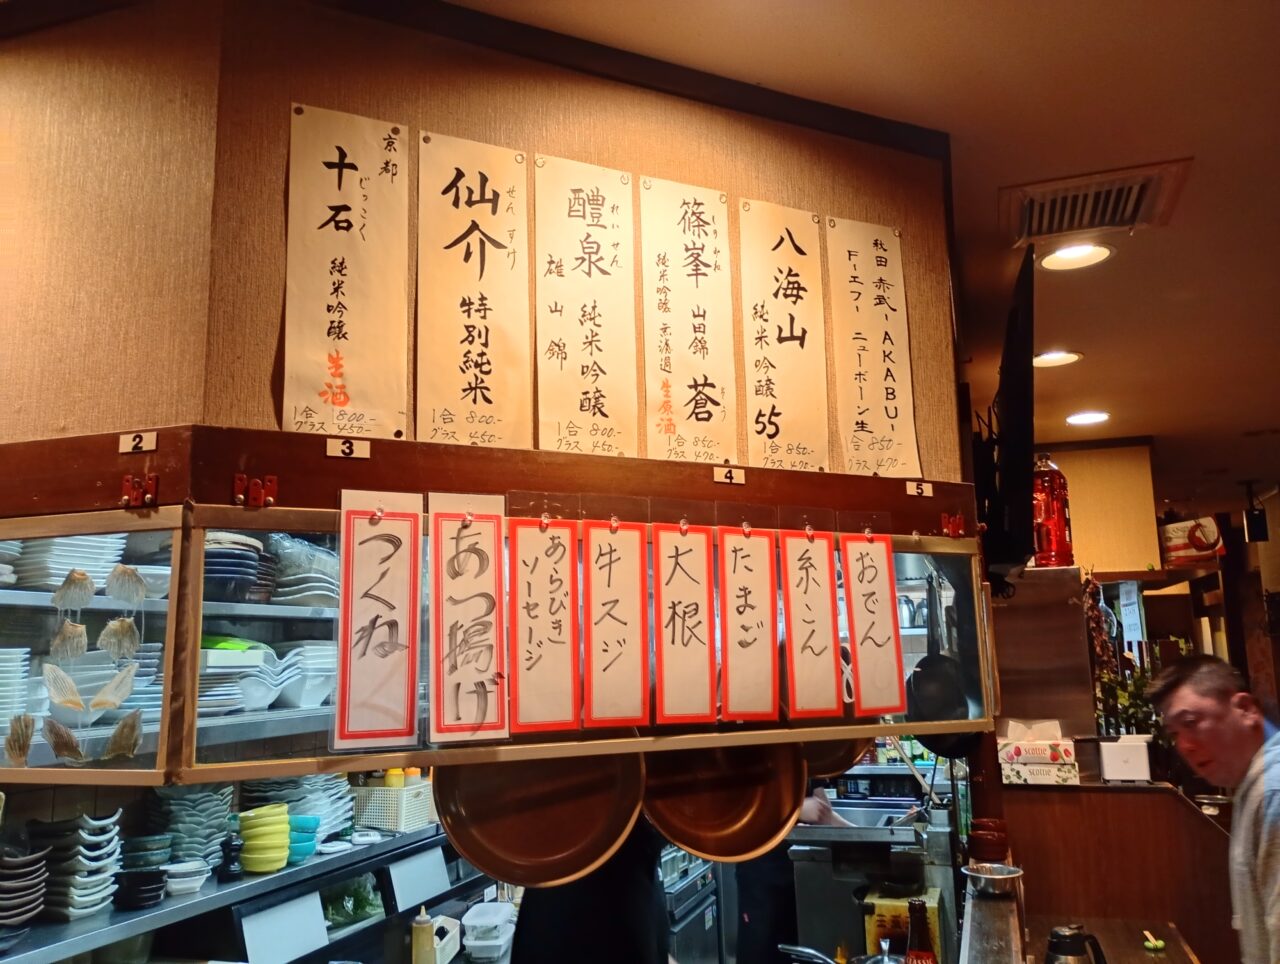 秋田 赤武-AKABU-
F-エフ- ニューボーン生
1合 850-
グラス 470-
八海山
純米吟醸 55
1合 850-
グラス 470-
しのみね そう
篠峯 山田錦 蒼
純米吟醸 無濾過 生原酒
1合 850-
グラス 470-
れいせん
醴泉 純米吟醸
雄山錦
1合 800-
グラス 450-
せんすけ
仙介 特別純米
1合 800-
グラス 450-
京都
じっこく
十石 純米吟醸 生酒
1合 800-
グラス 450-
2
3
4
5
おでん
糸こん
たまご
大根
牛スジ
あらびき
ソーセージ
あつ揚げ
つくね
scottie
scottie